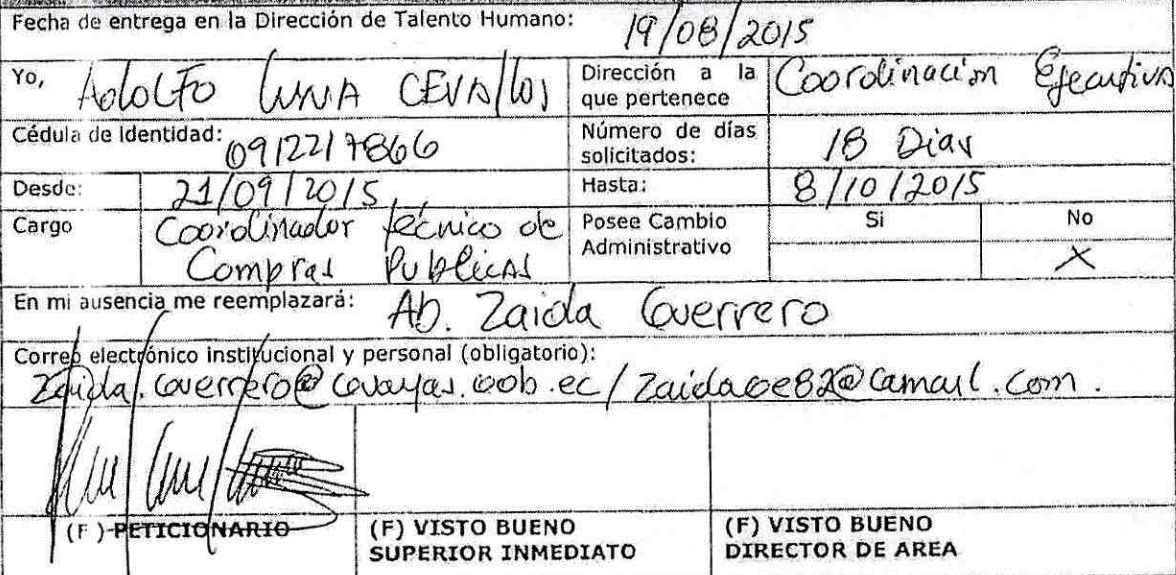 Fecha de entrega en la Dirección de Talento Humano: 19/08/2015
Yo, Adolfo Luna Cevallos
Dirección a la que pertenece Coordinación Ejecutiva
Cédula de Identidad: 0912217866
Número de días solicitados: 18 Dias
Desde: 21/09/2015
Hasta: 8/10/2015
Cargo Coordinador técnico de
Compras Publicas
Posee Cambio Administrativo
Si No
X
En mi ausencia me reemplazará: Ab. Zaida Guerrero
Correo electrónico institucional y personal (obligatorio):
Zaida.Guerrero@Guayas.Gob.ec / ZaidaGe82@Gmail.com.
(F) PETICIONARIO
(F) VISTO BUENO
SUPERIOR INMEDIATO
(F) VISTO BUENO
DIRECTOR DE AREA